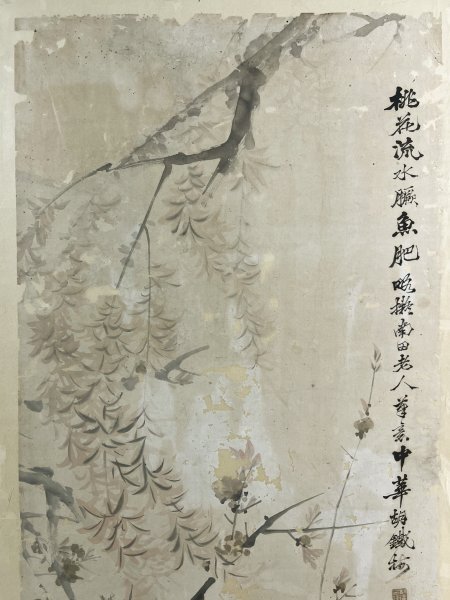 桃花流水鳜魚肥略擬南田老人筆意中華胡鐵梅